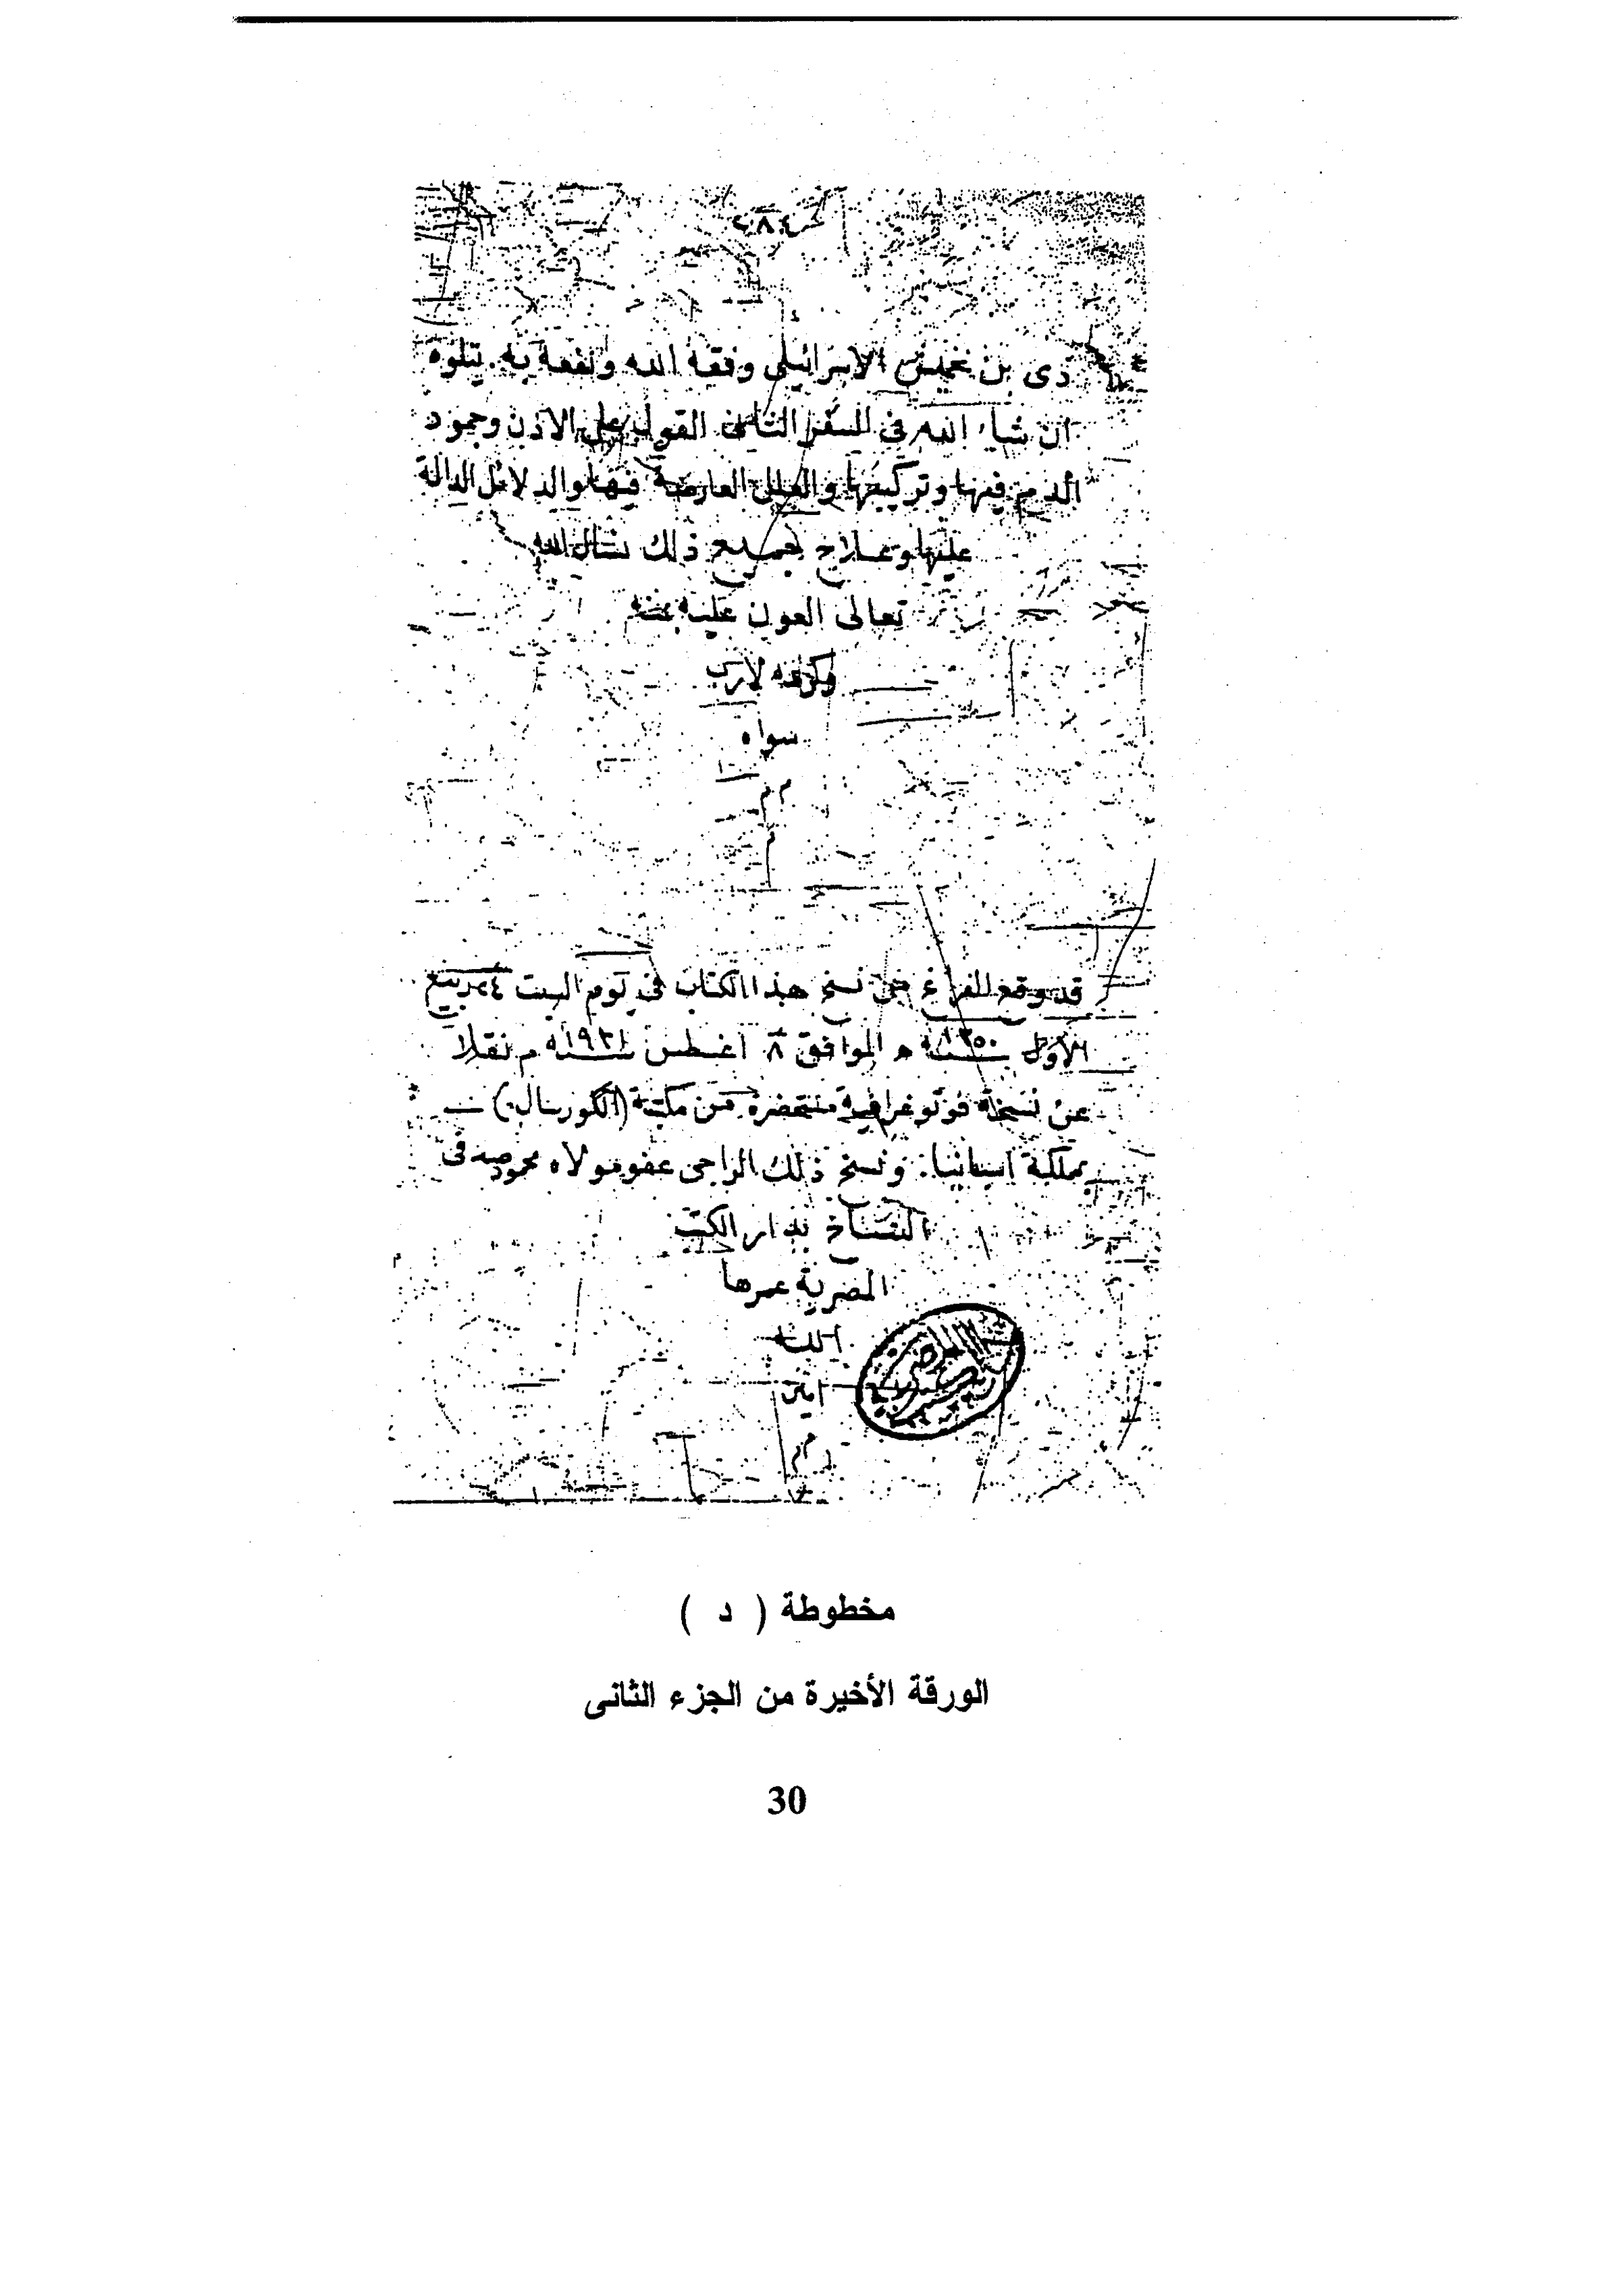 دى بن خميس الاسرائيلى وفقه الله ونفعه به. يتلوه
ان شاء الله فى السفر الثالث القول على الاذن وجمود
الدم فيها وتركيبها والعلل العارضة فيها والدلائل الدالة
عليها وعلاج جميع ذلك نسال الله
تعالى العون عليه بمنه
وكرمه لارب
سواه
م م
م
قد وقع الفراغ من نسخ هذا الكتاب فى يوم السبت ٢٤ ربيع
الأول سنة ١٣٥٠ ه الموافق ٨ اغسطس سنة ١٩٣١ م نقلا
عن نسخة فوتوغرافية مستحضرة من مكتبة (الكوريال)
بمملكة اسبانيا. ونسخ ذلك الراجى عفو مولاه محمود صدقى
النساخ بدار الكتب
المصرية عمرها
الله
امين
م م
مخطوطة ( د )
الورقة الأخيرة من الجزء الثانى
30